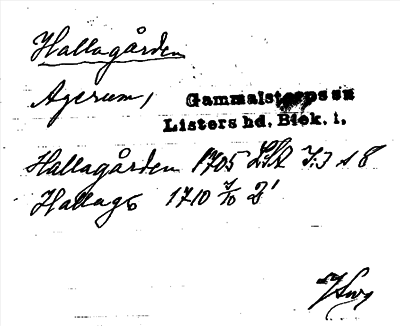 Hallagården
Agerum,
Gammalstorps sn
Listers hd. Blek. l.
Hallagården 1705 LSA I:I s 8
Hallagd 1710 7/10 2'